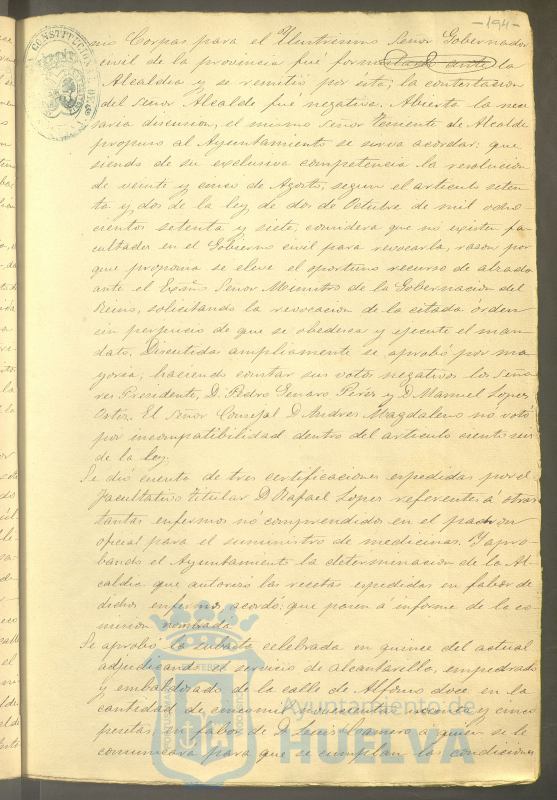 -194-
CONSTITUCIONAL DE
nio Corpas para el Ilustrisimo Señor Gobernador
civil de la provincia fué formulada ante la
Alcaldia y se remitió por ésta; la contestacion
del Señor Alcalde fué negativa. Abierta la nece
saria discusion, el mismo Señor Teniente de Alcalde
propuso al Ayuntamiento se sirva acordar: que
siendo de su exclusiva competencia la resolucion
de veinte y cinco de Agosto, segun el articulo seten
ta y dos de la ley de dos de Octubre de mil ocho
cientos setenta y siete, considera que no existen fa
cultades en el Gobierno civil para revocarla, razon por
que proponia se eleve el oportuno recurso de alzada
ante el Excmo Señor Ministro de la Gobernacion del
Reino, solicitando la revocacion de la citada órden
sin perjuicio de que se obedezca y ejecute el man
dato. Discutida ampliamente se aprobó por ma
yoria, haciendo constar sus votos negativos los Seño
res Presidente, D. Pedro Genaro Perez y D. Manuel Lopez
Ortiz. El Señor Concejal D. Andres Magdaleno nó votó
por incompatibilidad dentro del articulo ciento seis
de la ley.
Se dió cuenta de tres certificaciones expedidas por el
Facultativo titular D. Rafael Lopez referente á otros
tantos enfermos nó comprendidos en el padron
oficial para el suministro de medicinas. Y apro
bando el Ayuntamiento la determinacion de la Al
caldia que autorizó las recetas expedidas en fabor de
dichos enfermos, acordó: que pasen á informe de la co
mision nombrada
Se aprobó la subasta celebrada en quince del actual
adjudicando el servicio de alcantarillo, empedrado
y embaldosado de la calle de Alfonso doce en la
cantidad de cinco mil novecientas sesenta y cinco
pesetas en fabor de D. Luis Coamero a quien se le
comunicará para que se cumplan las condiciones
Ayuntamiento de
HUELVA